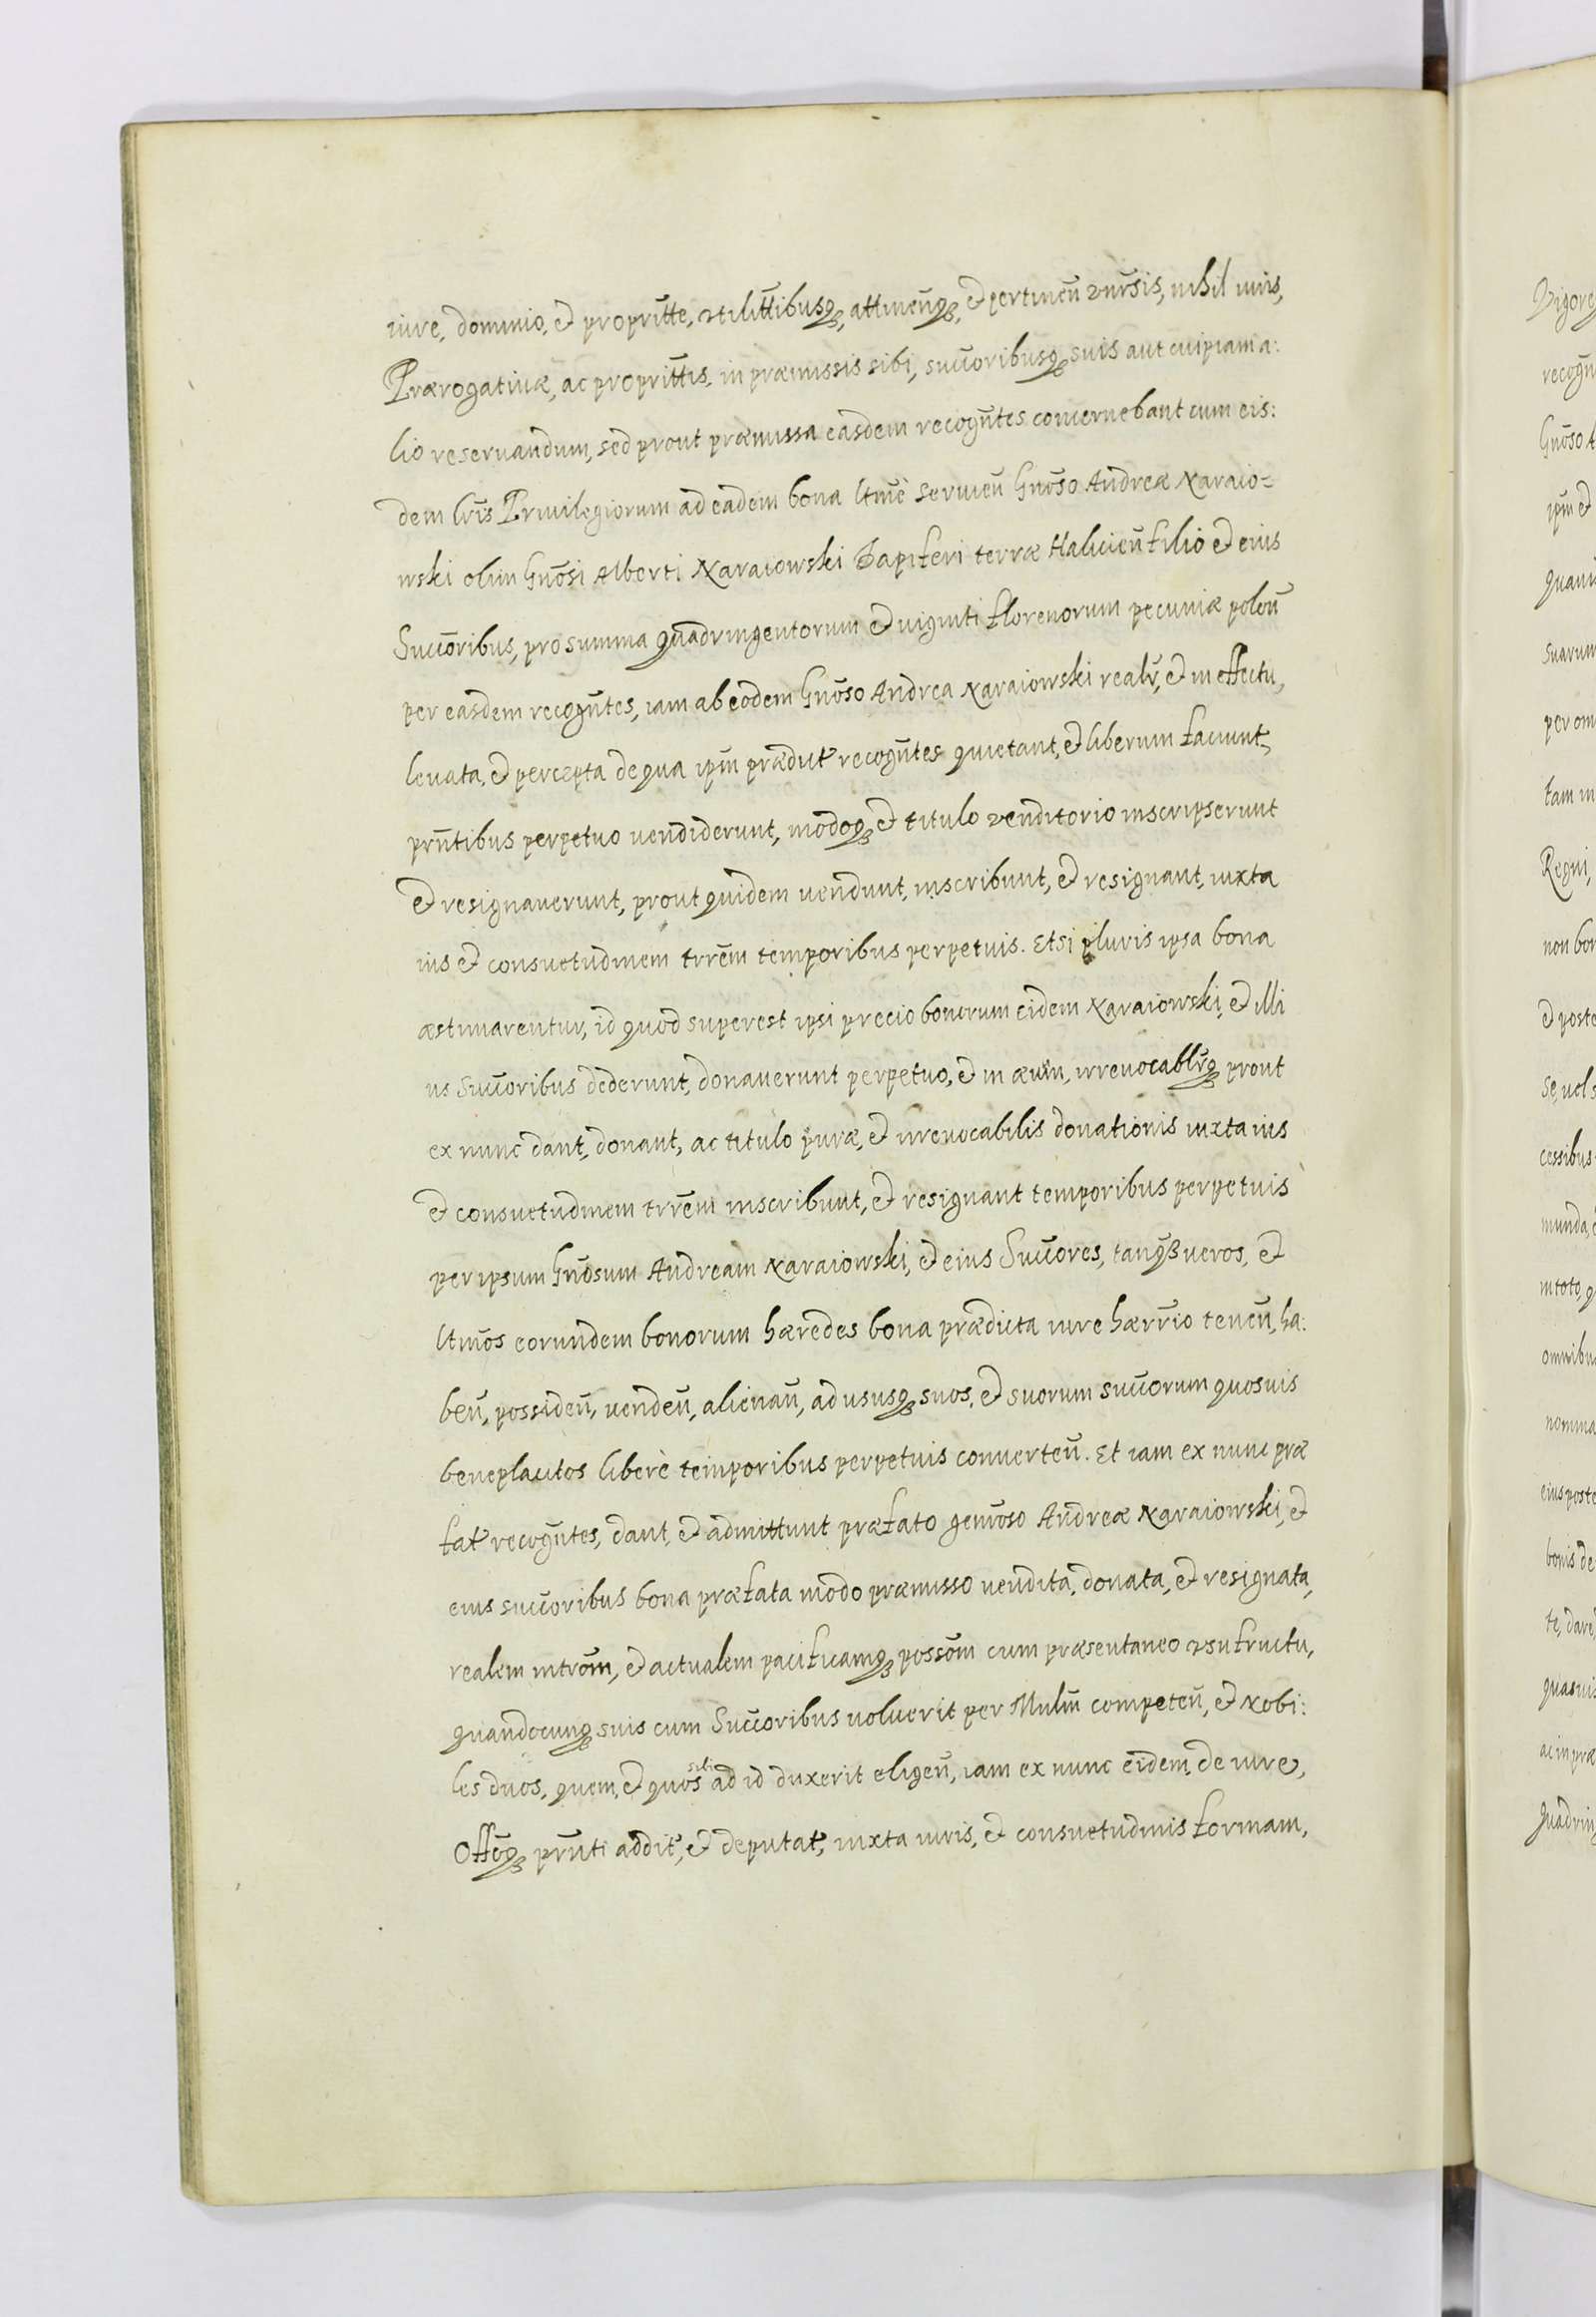 iure, dominio, et propriĩtte, vtiliĩttibusq, attineñq, et pertineñ vnṽrsis, nihil iuris,
Prærogatiuæ, ac propriĩttis, in præmissis sibi, succ̃oribusq suis aut cuipiam a:
lio reseruandum, sed prout præmissa easdem recogñtes concernebant cum eis:
dem lr̃is Priuilegiorum ad eadem bona ltm̃è seruieñ Gnõso Andreæ Naraio=
wski olim Gnõsi Alberti Naraiowski Dapiferi terræ Halicieñ filio et eius
Succ̃oribus, pro summa quadringentorum et viginti florenorum pecuniæ poloñ
per easdem recogñtes, iam ab eodem Gnõso Andrea Naraiowski realr̃, et in effectu,
leuata, et percepta de qua ipm̃ prædict recogñtes quietant, et liberum faciunt,
prñtibus perpetuo vendiderunt, modoq et titulo venditorio inscripserunt
et resignauerunt, prout quidem vendunt, inscribunt, et resignant, iuxta
ius et consuetudinem trrẽm temporibus perpetuis. Etsi pluris ipsa bona
æstimarentur, id quod superest ipsi precio bonorum eidem Naraiowski, et illi
us Succ̃oribus dederunt, donauerunt perpetuo, et in æuum, irreuocablr̃q prout
ex nunc dant, donant, ac titulo puræ, et irreuocabilis donationis iuxta ius
et consuetudinem trrẽm inscribunt, et resignant temporibus perpetuis
per ipsum Gnõsum Andream Naraiowski, et eius Succ̃ores, tanq̃ß veros, et
ltm̃os eorundem bonorum hæredes bona prædicta iure hærr̃io teneñ, ha:
beñ, possideñ, vendeñ, alienañ, ad ususq suos, et suorum succ̃orum quosuis
beneplacitos liberè temporibus perpetuis conuerteñ. Et iam ex nunc præ
fat recogñtes, dant, et admittunt præfato genõso Andreæ Naraiowski, et
eius succ̃oribus bona præfata modo præmisso vendita, donata, et resignata,
realem intrõm, et actualem pacificamq possõm cum præsentaneo vsufructu,
quandocunq suis cum Succ̃oribus voluerit per Mnlm̃ competeñ, et Nobi:
les duos, quem, et quos sibi ad id duxerit eligeñ, iam ex nunc eidem de iure,
Offõq prñti addit, et deputat, iuxta iuris, et consuetudinis formam,